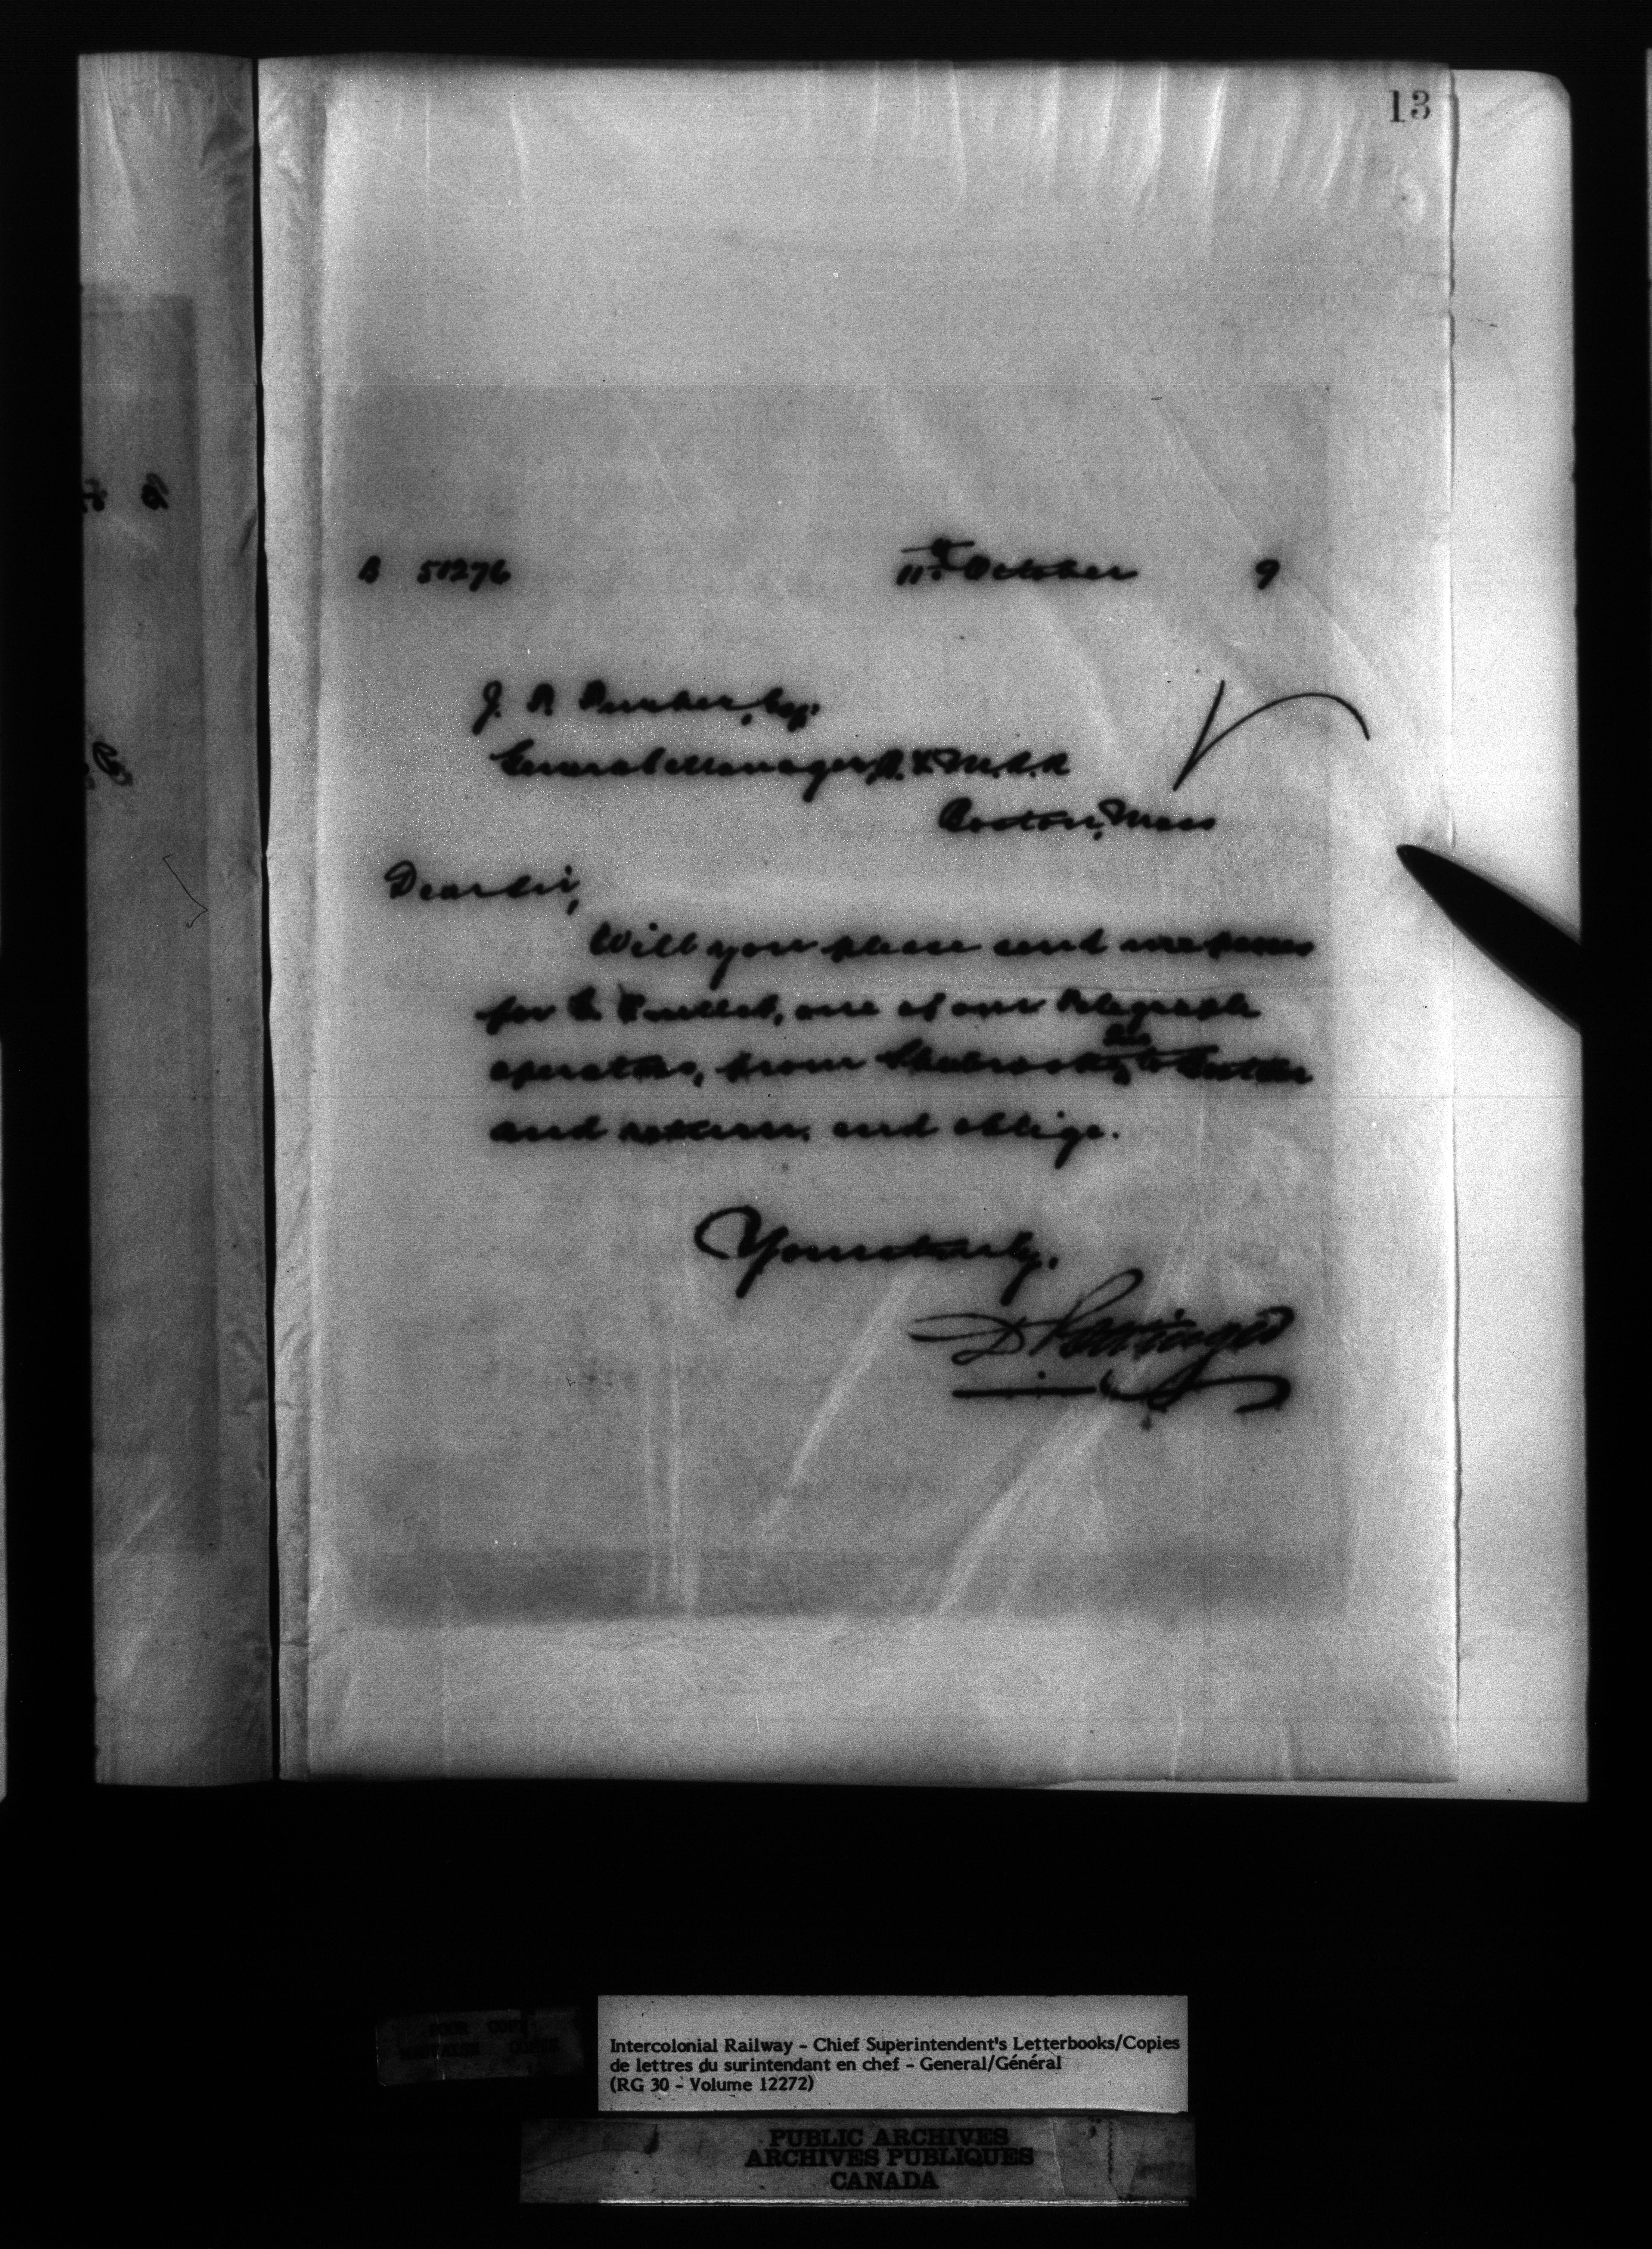 13
B 51276 11th October 9
J. P. Esq.
General Manager, B. & M. R. R.
Boston, Mass
Dear Sir,
Will you please send me passes
for one of our telegraph
operators, from Sherbrooke, Que to Boston
and return, and oblige.
Yours truly,
D Pottinger
POOR COPY
MAUVAISE COPIE
Intercolonial Railway - Chief Superintendent's Letterbooks/Copies
de lettres du surintendant en chef - General/Général
(RG 30 - Volume 12272)
PUBLIC ARCHIVES
ARCHIVES PUBLIQUES
CANADA